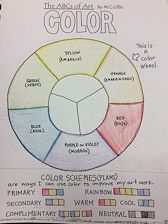 The ABCs of Art By M.C.Gillis
COLOR
This is
a color
wheel.
YELLOW
(AMARILLO)
ORANGE
(ANARANJADO)
GREEN
(VERDE)
RED
(ROJO)
BLUE
(AZUL)
PURPLE OR VIOLET
(MORADO)
COLOR SCHEMES(PLANS)
are ways I can use color to improve my art work.
PRIMARY RAINBOW
SECONDARY WARM COOL
COMPLIMENTARY NEUTRAL